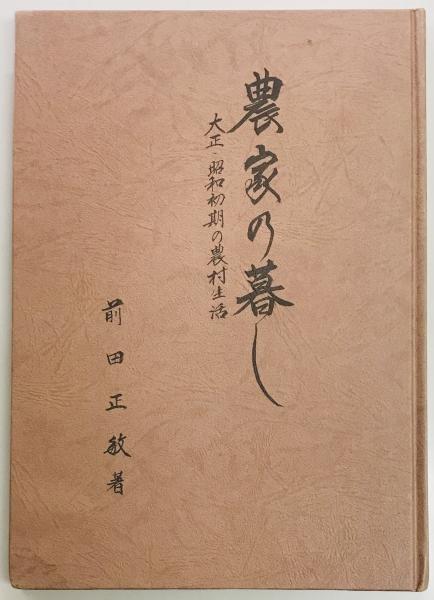 農家の暮し
大正・昭和初期の農村生活
前田正敏著